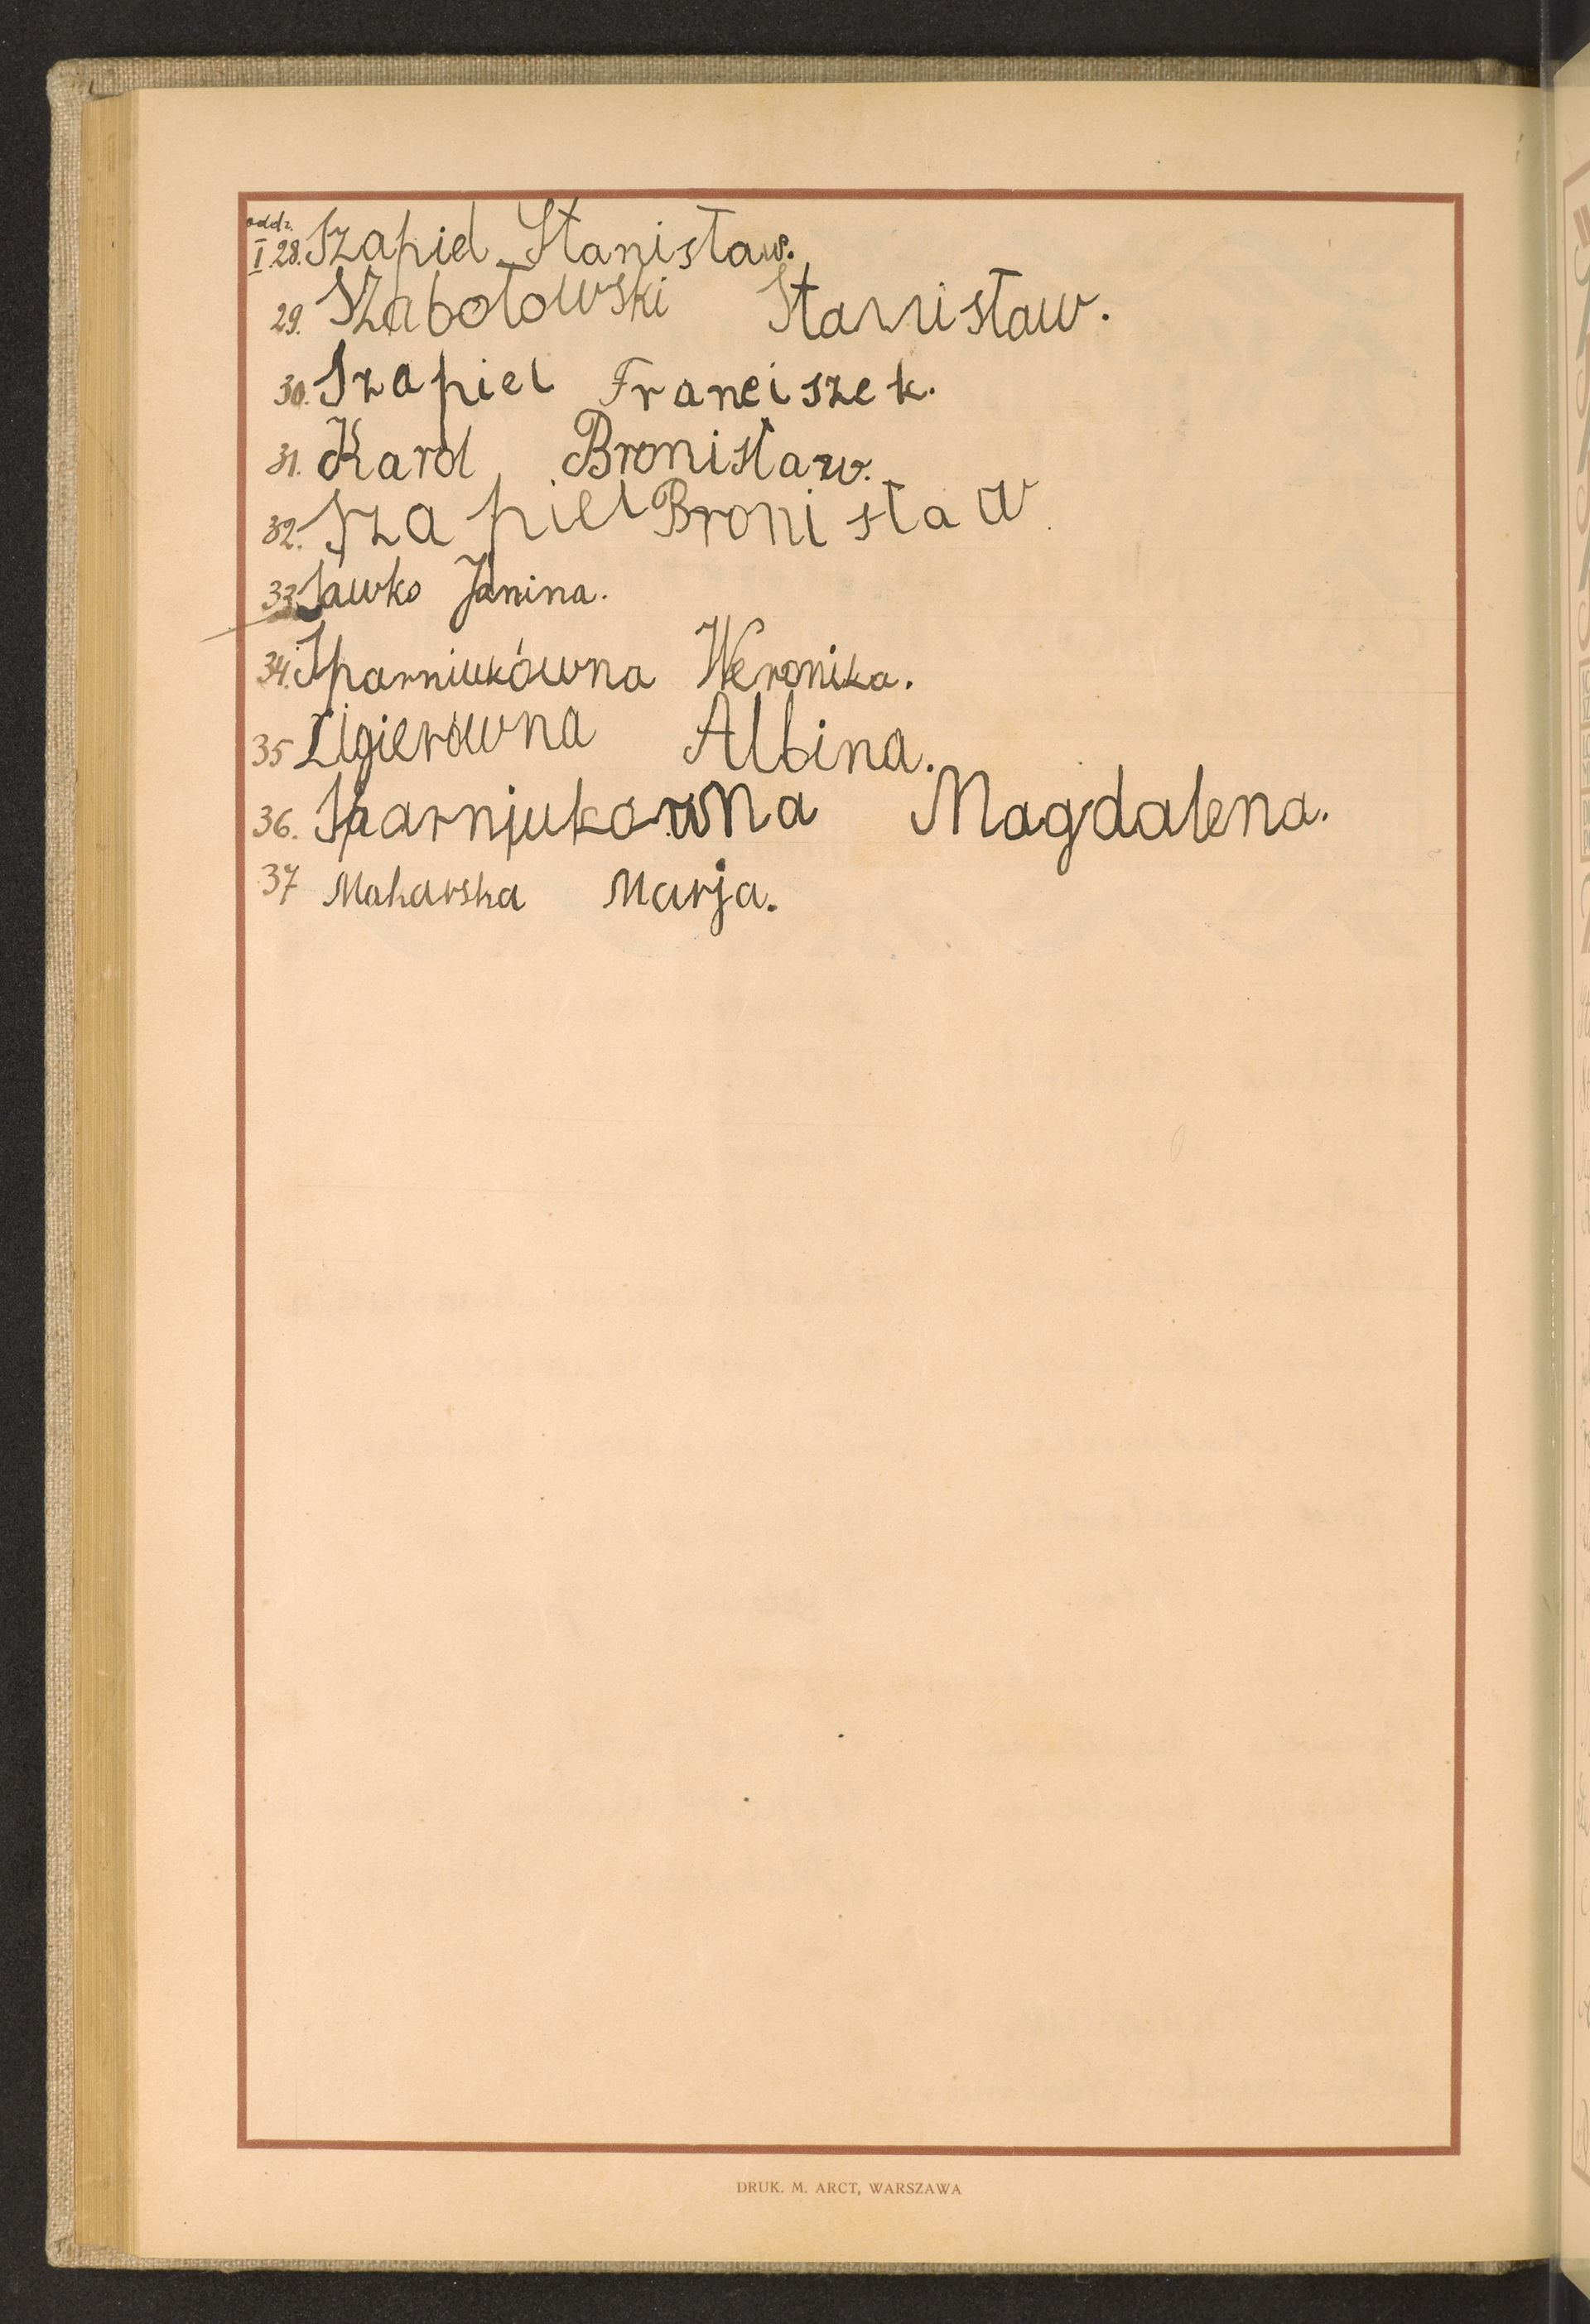 oddz.
I.28. Szapiel Stanisław.
29. Szabołowski Stanisław.
30. Szapiel Franciszek.
31. Karol Bronisław.
32. Szapiel Bronisław.
33. Sawko Janina.
34. Sparniukówna Weronika.
35 Ligierówna Albina.
36. Sparnjukowna Magdalena.
37 Makarska Marja.
DRUK. M. ARCT, WARSZAWA